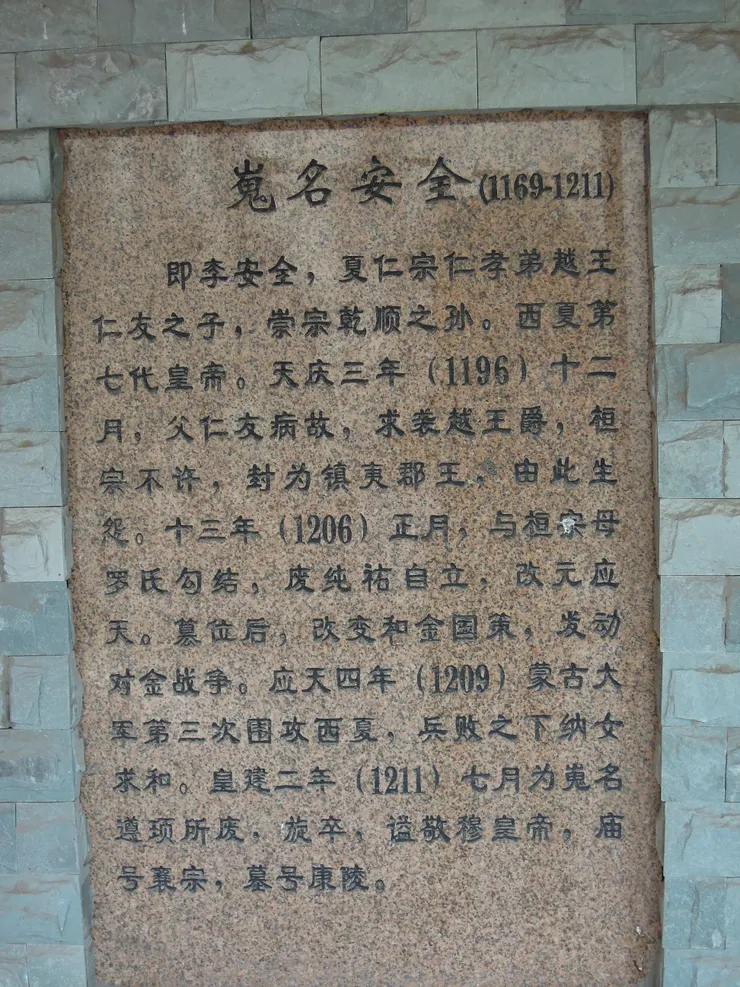 嵬名安全(1169-1211)
即李安全，夏仁宗仁孝弟越王
仁友之子，崇宗乾顺之孙。西夏第
七代皇帝。天庆三年（1196）十二
月，父仁友病故，求袭越王爵，桓
宗不许，封为镇夷郡王，由此生
怨。十三年（1206）正月，与桓宗母
罗氏勾结，废纯祐自立，改元应
天。篡位后，改变和金国策，发动
对金战争。应天四年（1209）蒙古大
军第三次围攻西夏，兵败之下纳女
求和。皇建二年（1211）七月为嵬名
遵顼所废，旋卒，谥敬穆皇帝，庙
号襄宗，墓号康陵。